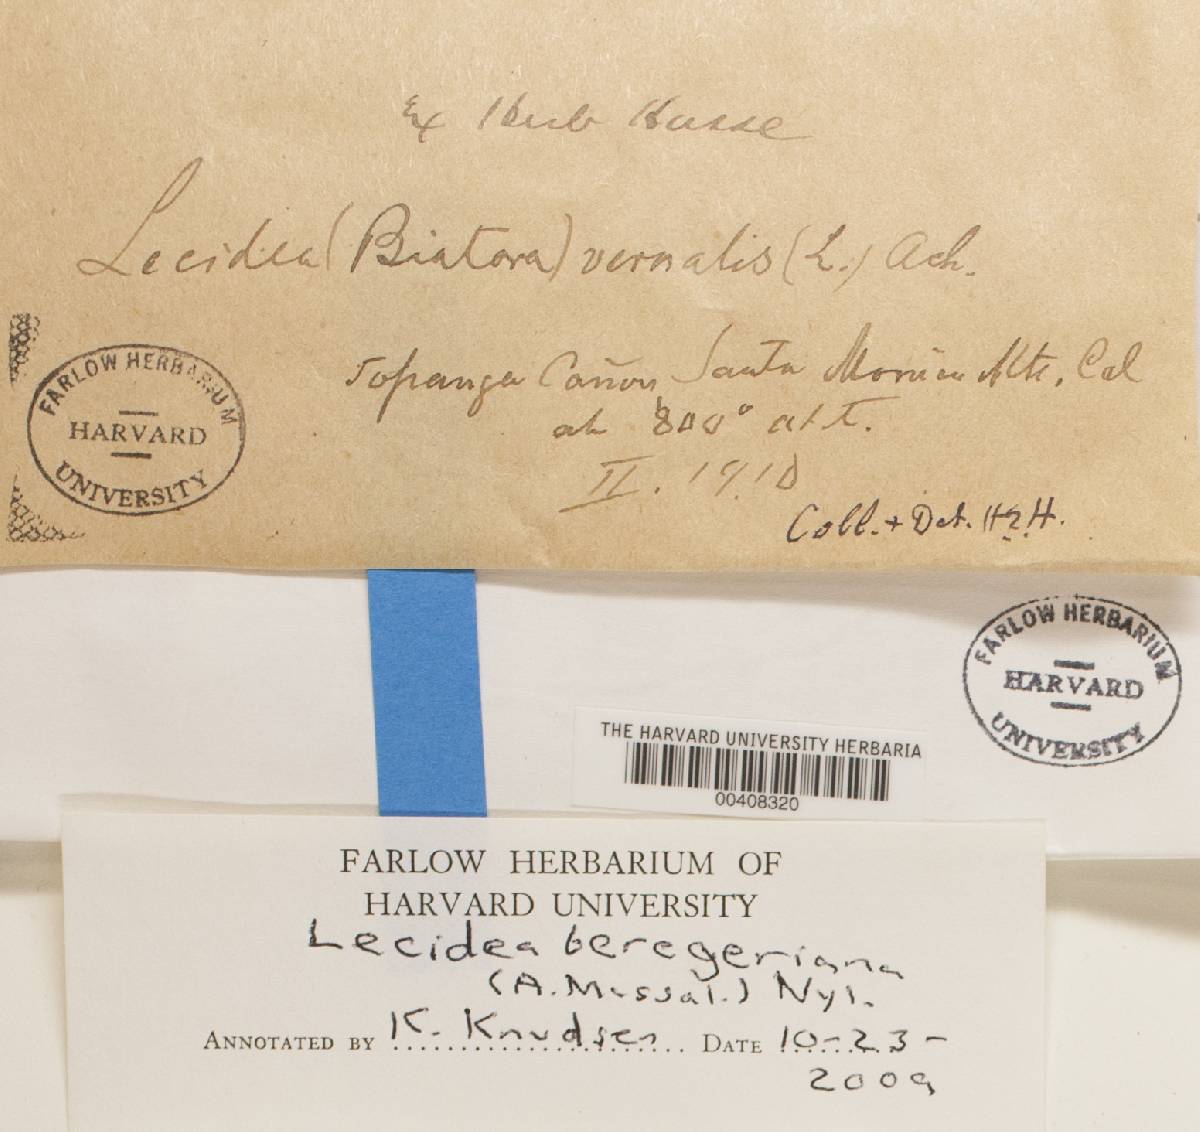 Ex Herb Hasse
Lecidea (Biatora) vernalis (L.) Ach.
Topanga Cañon Santa Monica Mts, Cal
at 800° alt.
II. 1910
Coll. + Det. H.E.H.
FARLOW HERBARIUM
HARVARD
UNIVERSITY
FARLOW HERBARIUM
HARVARD
UNIVERSITY
THE HARVARD UNIVERSITY HERBARIA
00408320
FARLOW HERBARIUM OF
HARVARD UNIVERSITY
Lecidea beregeriana
(A. Massal.) Nyl.
ANNOTATED BY K. Knudsen DATE 10-23-
2009